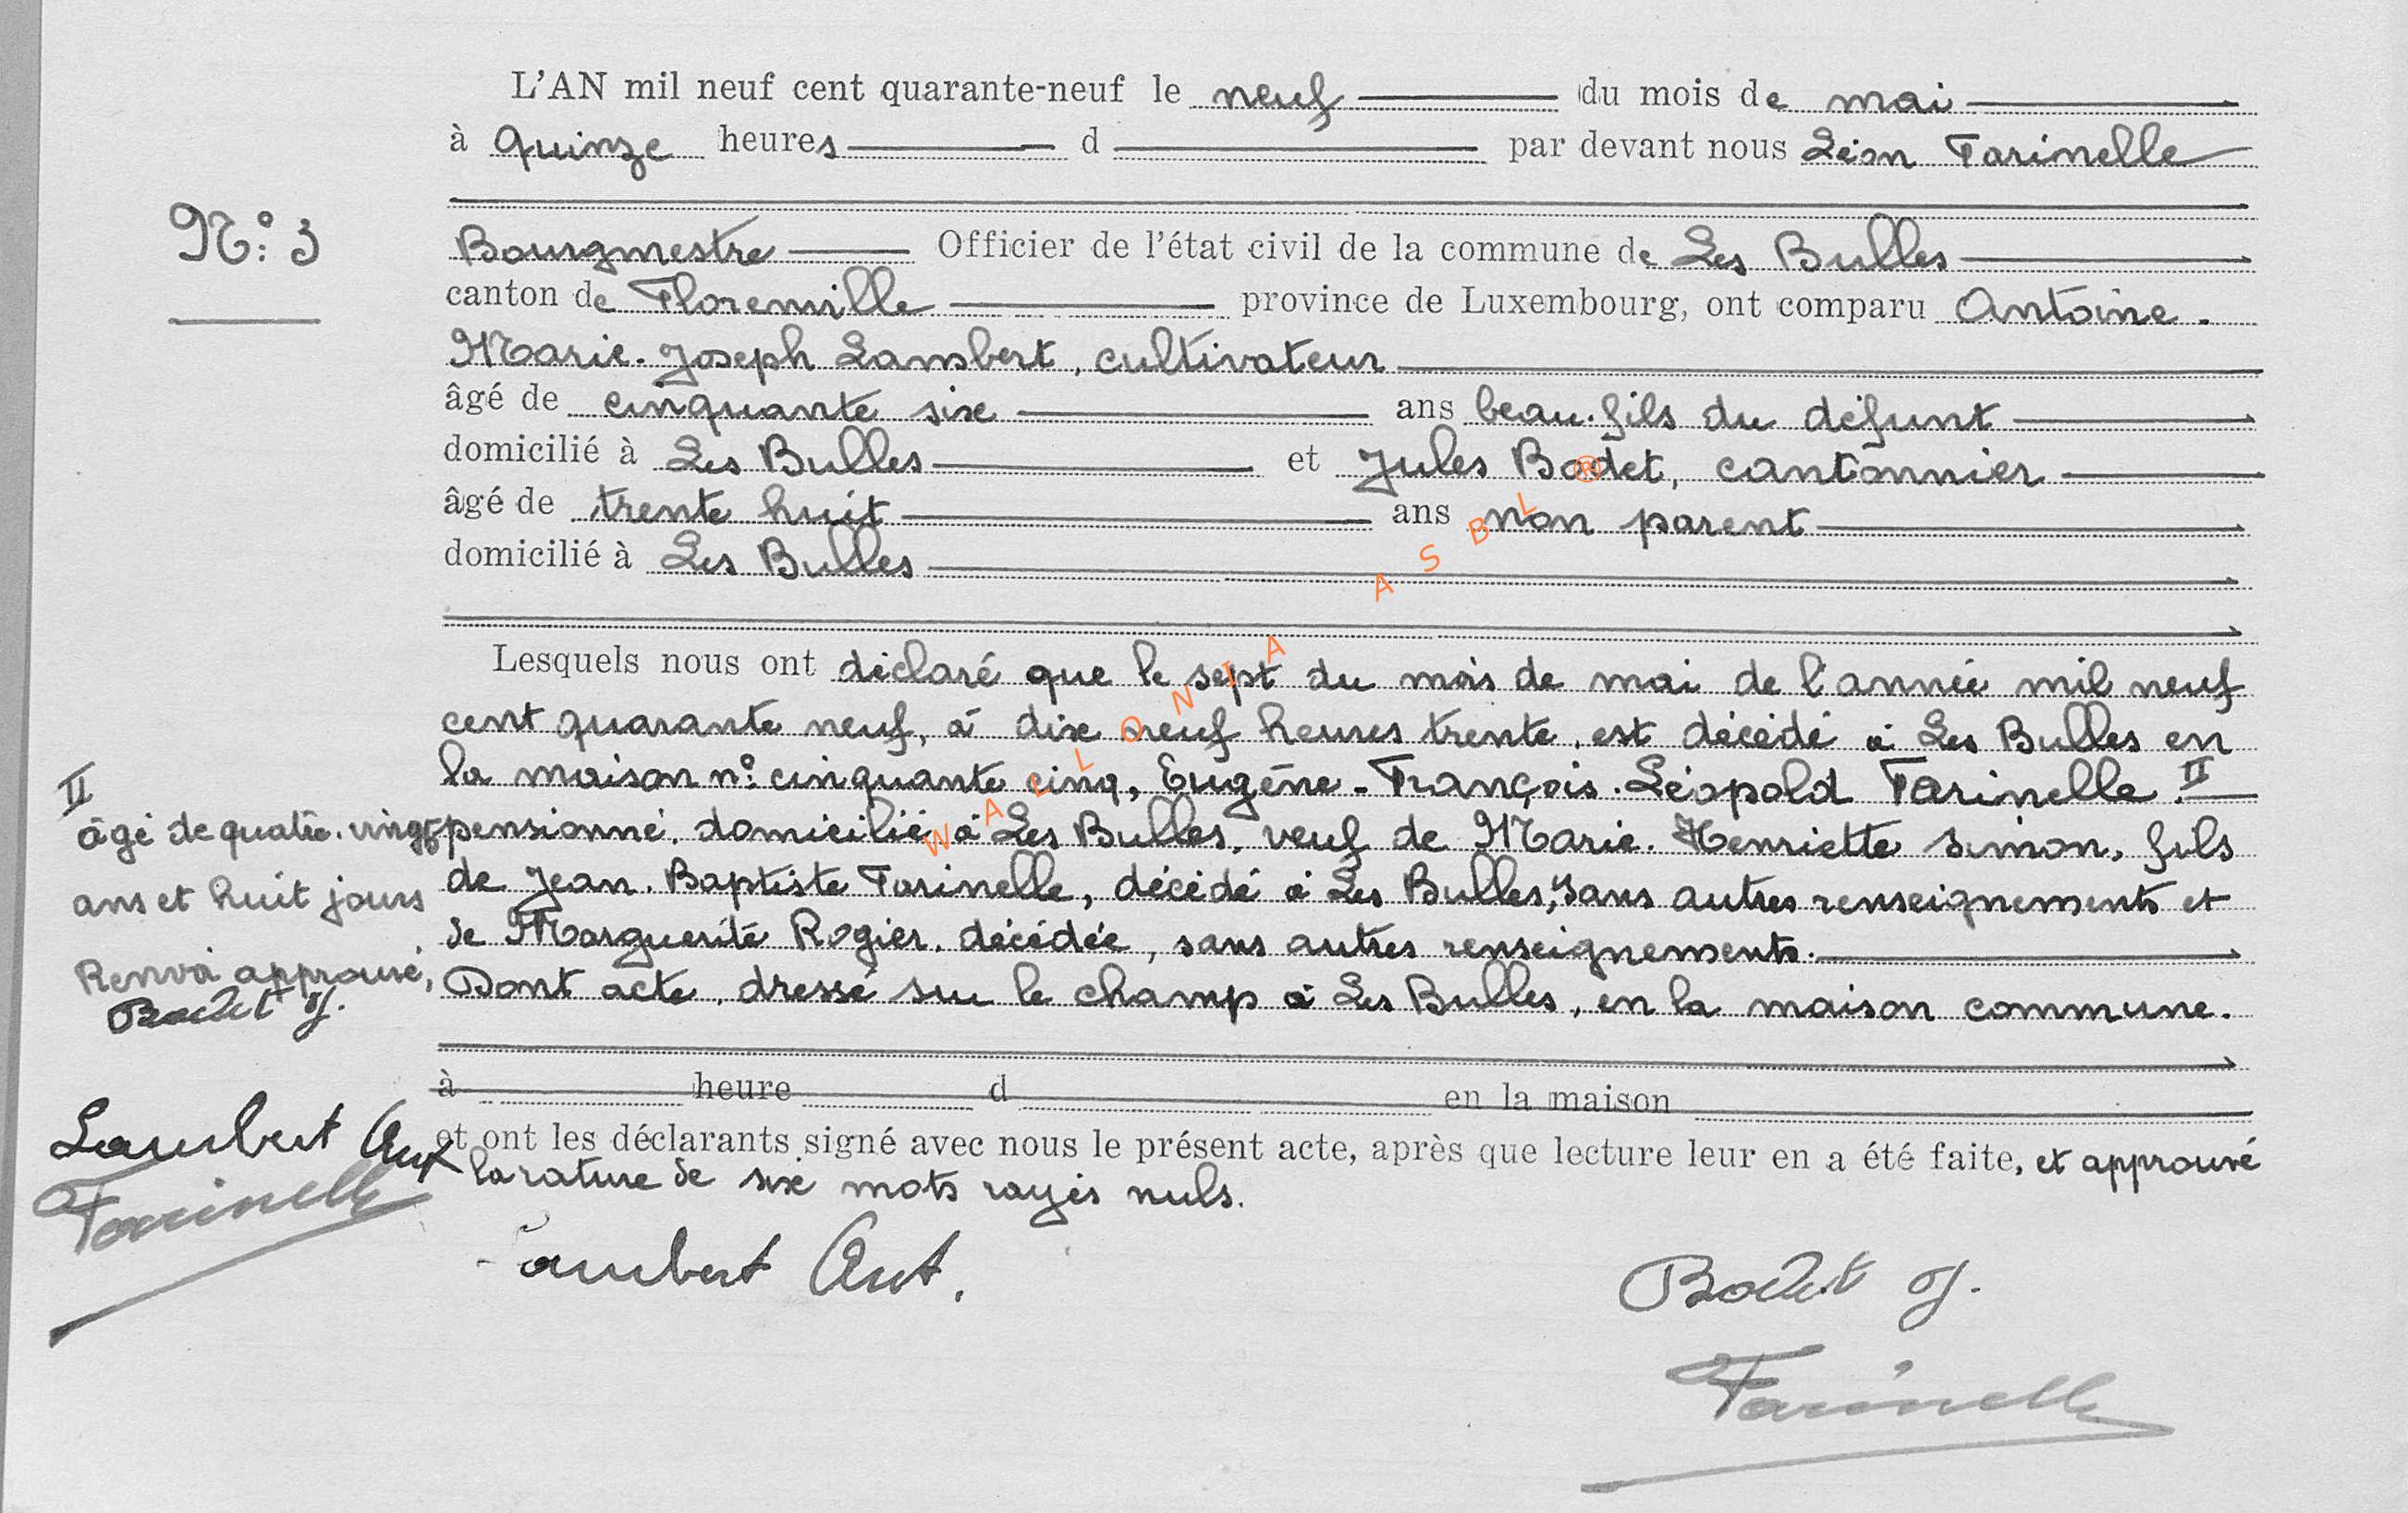 L'AN mil neuf cent quarante-neuf le neuf du mois de mai
à quinze heures d par devant nous Léon Farinelle
N°: 3
Bourgmestre Officier de l'état civil de la commune de Les Bulles
canton de Florenville province de Luxembourg, ont comparu Antoine-
Marie-Joseph Lambert, cultivateur
âgé de cinquante six ans beau-fils du défunt
domicilié à Les Bulles et Jules Bodet, cantonnier
âgé de trente huit ans non parent
domicilié à Les Bulles
Lesquels nous ont déclaré que le sept du mois de mai de l'année mil neuf
cent quarante neuf, à dix neuf heures trente, est décédé à Les Bulles en
la maison n° cinquante cinq, Eugène-François-Léopold Farinelle II
pensionné, domicilié à Les Bulles, veuf de Marie-Henriette Simon, fils
de Jean-Baptiste Farinelle, décédé à Les Bulles, sans autres renseignements et
de Marguerite Rogier, décédée, sans autres renseignements.
Dont acte, dressé sur le champ à Les Bulles, en la maison commune.
à heure d en la maison
et ont les déclarants signé avec nous le présent acte, après que lecture leur en a été faite, et approuvé
la rature de six mots rayés nuls.
Lambert Ant.
Bodet J.
Farinelle
II
âgé de quatre-vingt
ans et huit jours
Renvoi approuvé,
Bodet J.
Lambert Ant
Farinelle
WALLONIA ASBL ®